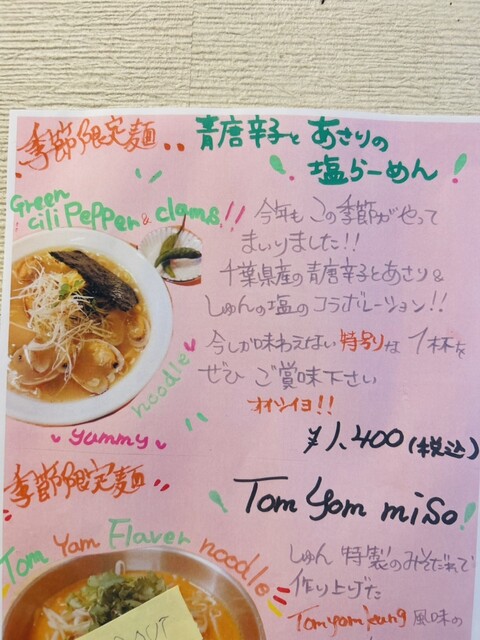 季節限定麺
青唐辛子と あさりの
塩らーめん!
Green
cili Pepper & clams!!
noodle
yummy
今年も この季節がやって
まいりました!!
千葉県産の青唐辛子とあさり&
しゅんの塩のコラボレーション!!
今しか味わえない 特別な 1杯を
ぜひ ご賞味下さい
オイシイヨ!!
¥1,400(税込)
季節限定麺
Tom Yom miso!
Tom Yam Flaver noodle
しゅん 特製のみそだれで
作り上げた
Tomyamkung 風味の
OUT